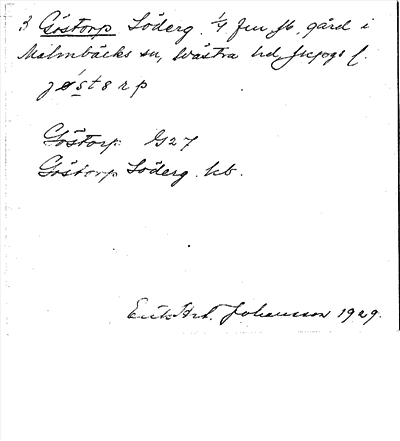 3 Göstorp Söderg. 1/4 fm sk. gård i
Malmbäcks sn, Västra hd, Jkpgs l.
jøstərp
Göstorp G27
Göstorp Söderg. kb.
Erik Abd. Johansson 1929.